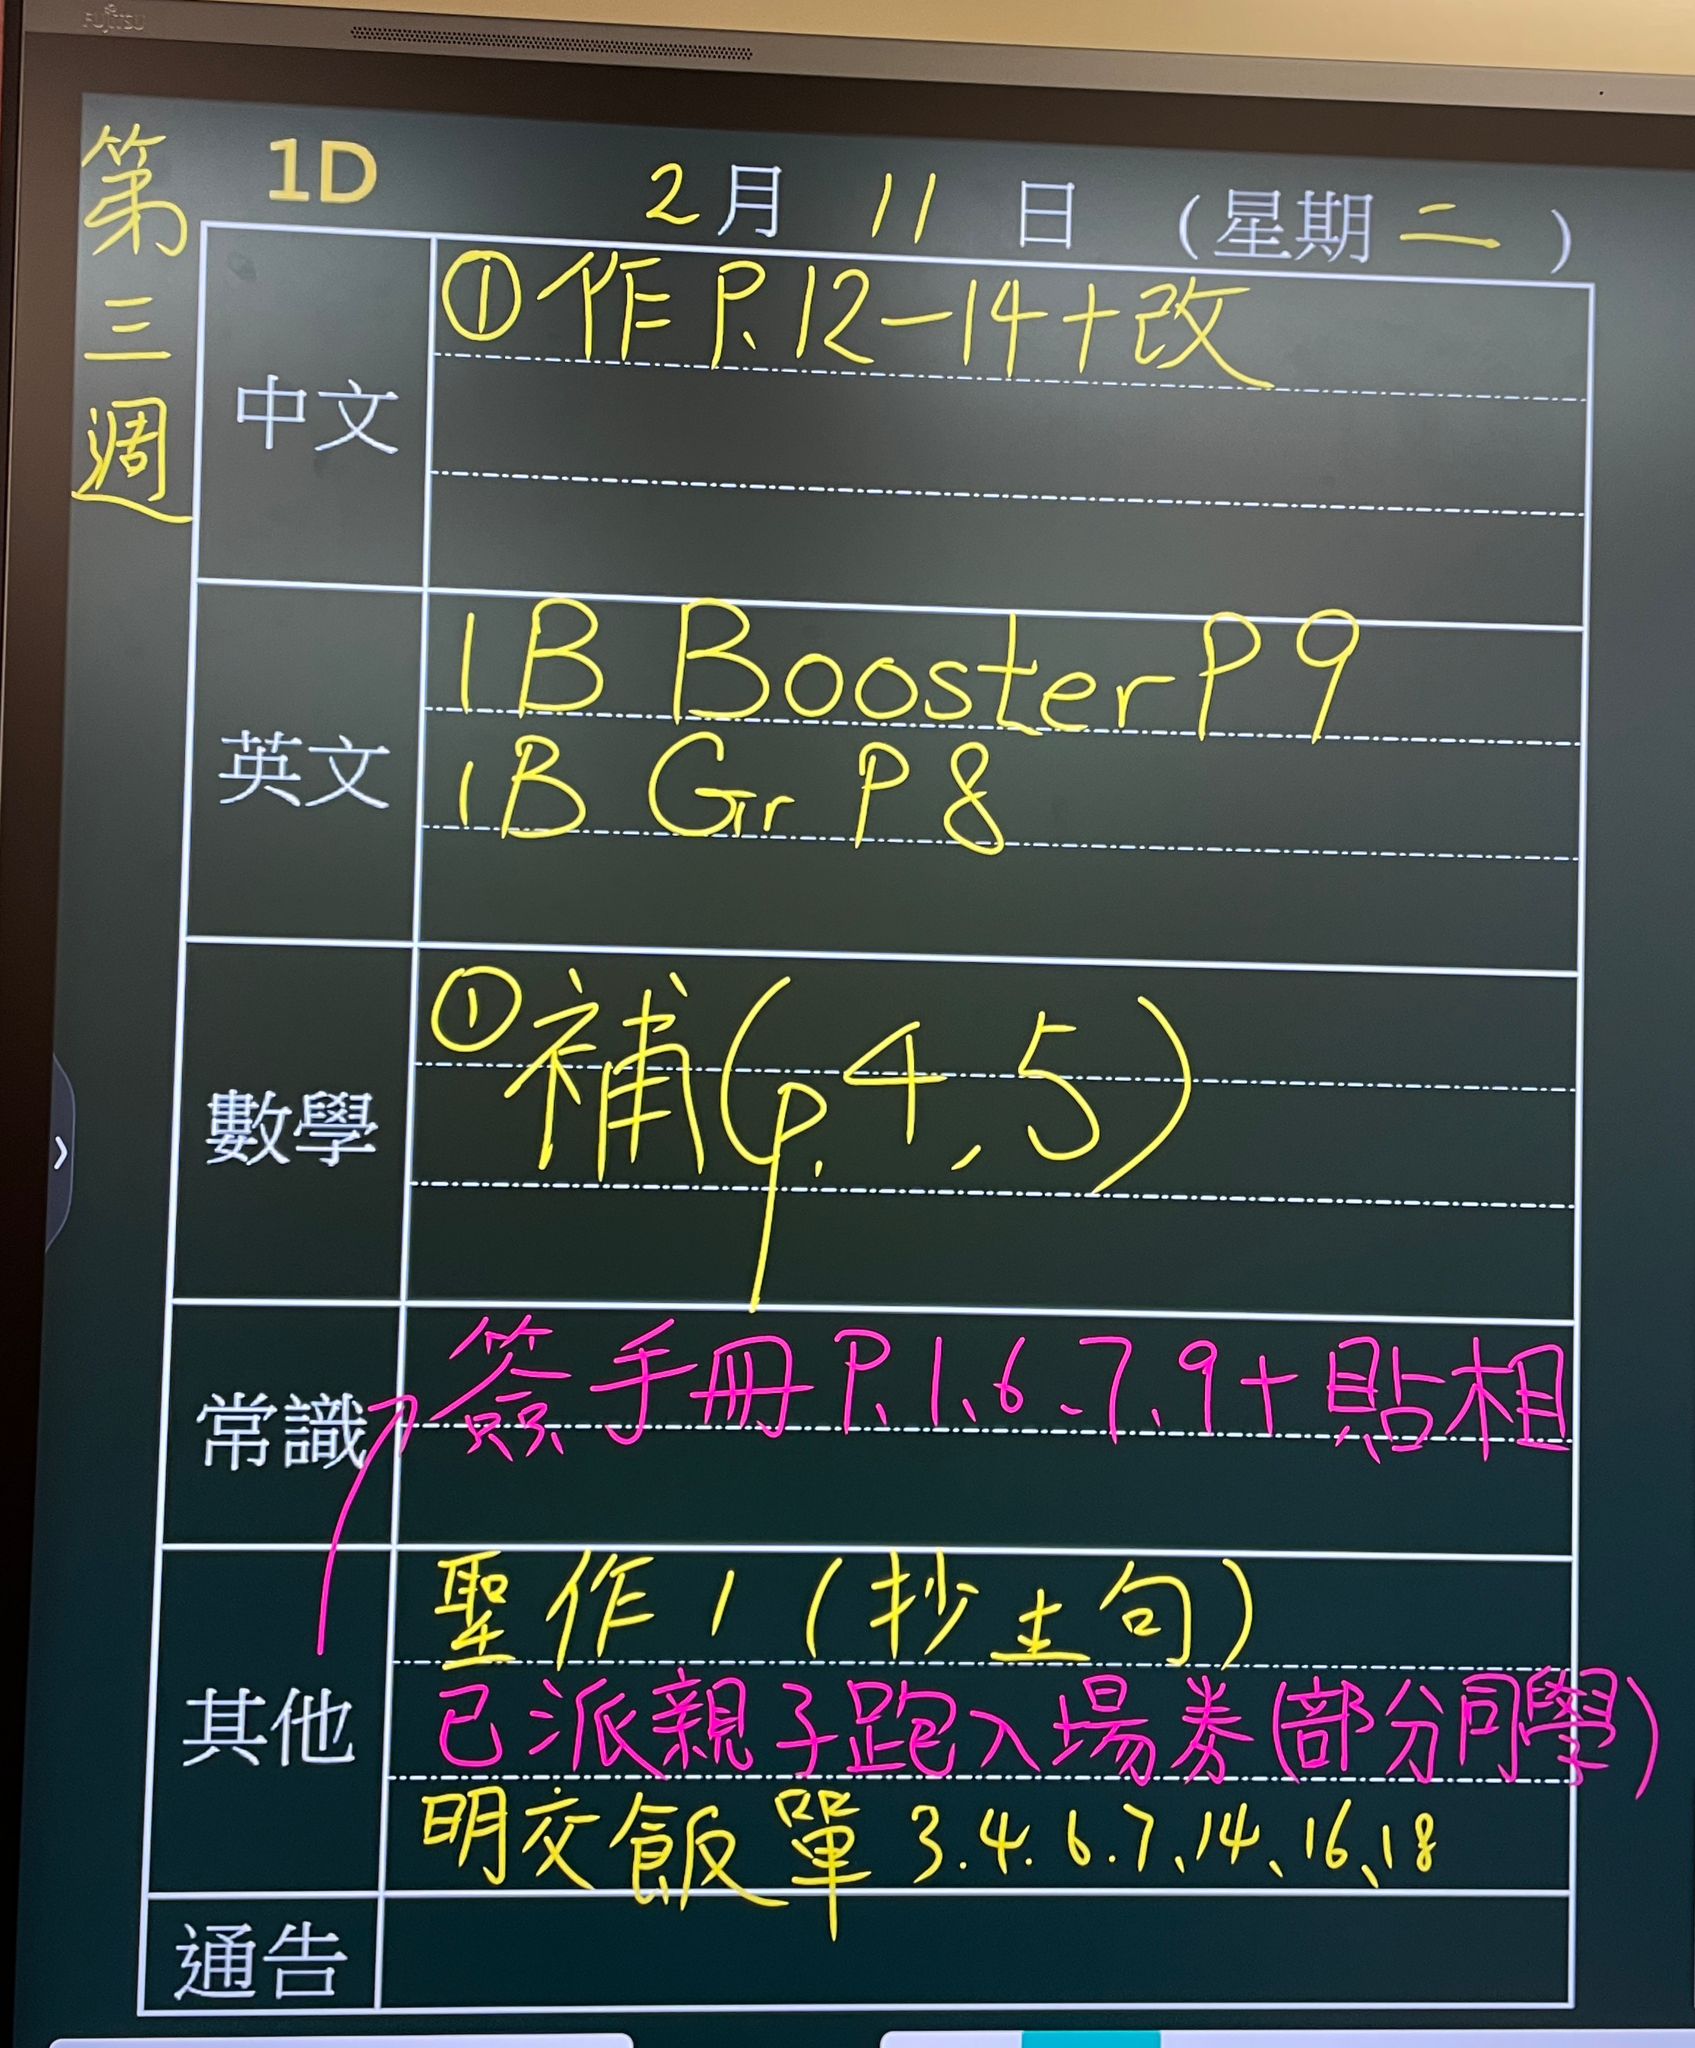 FUJITSU
第三週
1D 2月11日(星期二)
中文
①作P.12-14+改
英文
1B Booster P9
1B Gr P8
數學
①補(p.4,5)
常識
簽手冊P.1、6、7、9+貼相
其他
聖作1(抄主句)
已派親子跑入場券(部分同學)
明交飯單3.4.6.7、14、16、18
通告